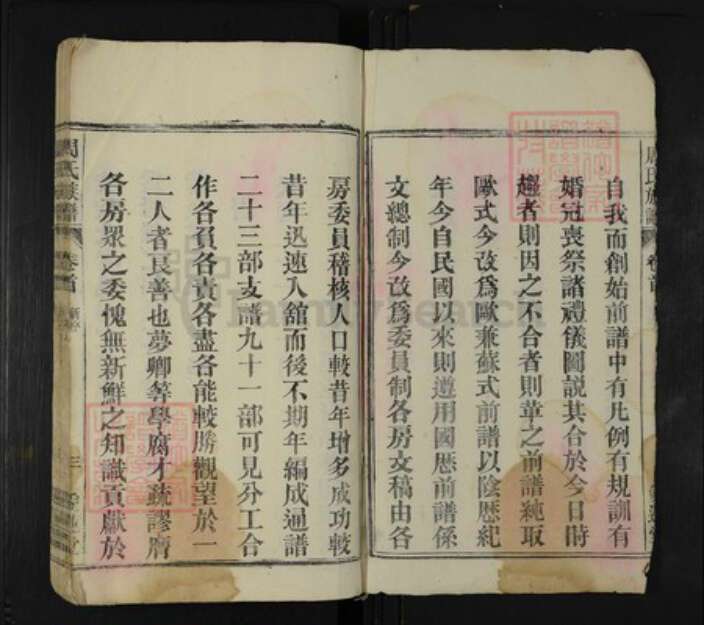 自我而創始前譜中有凡例有規訓有
婚冠喪祭諸禮儀圖説其合於今日時
趨者則因之不合者則革之前譜純取
歐式今改爲歐兼蘇式前譜以陰歴紀
年今自民國以來則遵用國歴前譜係
文總制今改爲委員制各房文稿由各
房委員稽核人口較昔年增多成功較
昔年迅速入舘而後不期年編成通譜
二十三部支譜九十一部可見分工合
作各負各責各盡各能較勝觀望於一
二人者良善也夢卿等學腐才疏謬膺
各房眾之委愧無新鮮之知識貢獻於
周氏族譜
卷首
三
周氏族譜
卷首
FamilySearch